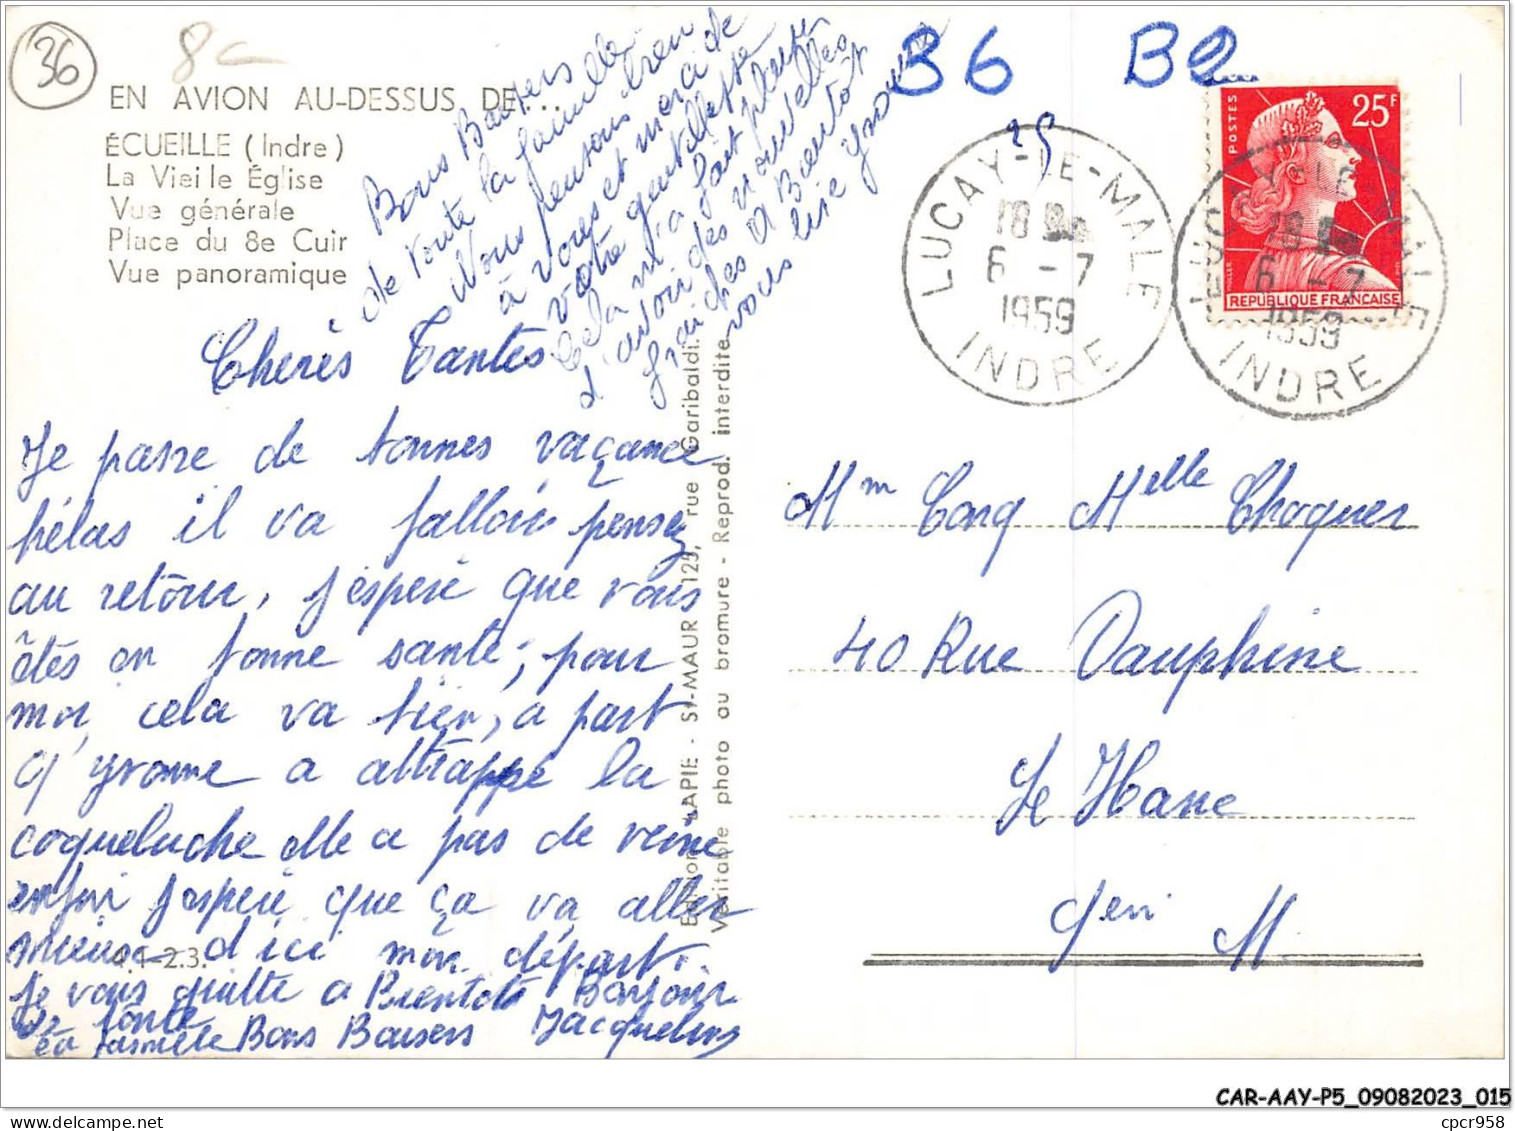 36
8c
EN AVION AU-DESSUS DE...
ÉCUEILLE (Indre)
La Vieille Église
Vue générale
Place du 8e Cuir
Vue panoramique
Bons Baisers
de toute la famille
Nous pensons bien
à vores et merci de
votre gentillesse
cela m'a fait plaisir
d'avoir des nouvelles
fraiches A Bientôt
vous lire Yvonne
Chères Tantes
Je passe de bonnes vaçance
hélas il va falloir pensez
au retour, j'espère que vous
êtes en bonne santé, pour
moi cela va bien, a part
q'yvonne a attrappé la
coqueluche elle a pas de veine
enfin j'espère que ça va aller
mieux d'ici mon départ.
4.1-2.3.
Je vous quitte a Bientôt Bonjour
de toute
la famille Bons Baisers Jacqueline
Edition LAPIE - St-MAUR 125, rue Garibaldi.
Véritable photo au bromure - Reprod. interdite
36 B2
25
POSTES
25F
REPUBLIQUE FRANCAISE
LUCAY-LE-MALE
18
6 - 7
1959
INDRE
LUCAY-LE-MALE
18
6 - 7
1959
INDRE
Mm Melle Choquer
40 Rue Dauphine
Le Havre
CAR-AAY-P5_09082023_015
cpcr958